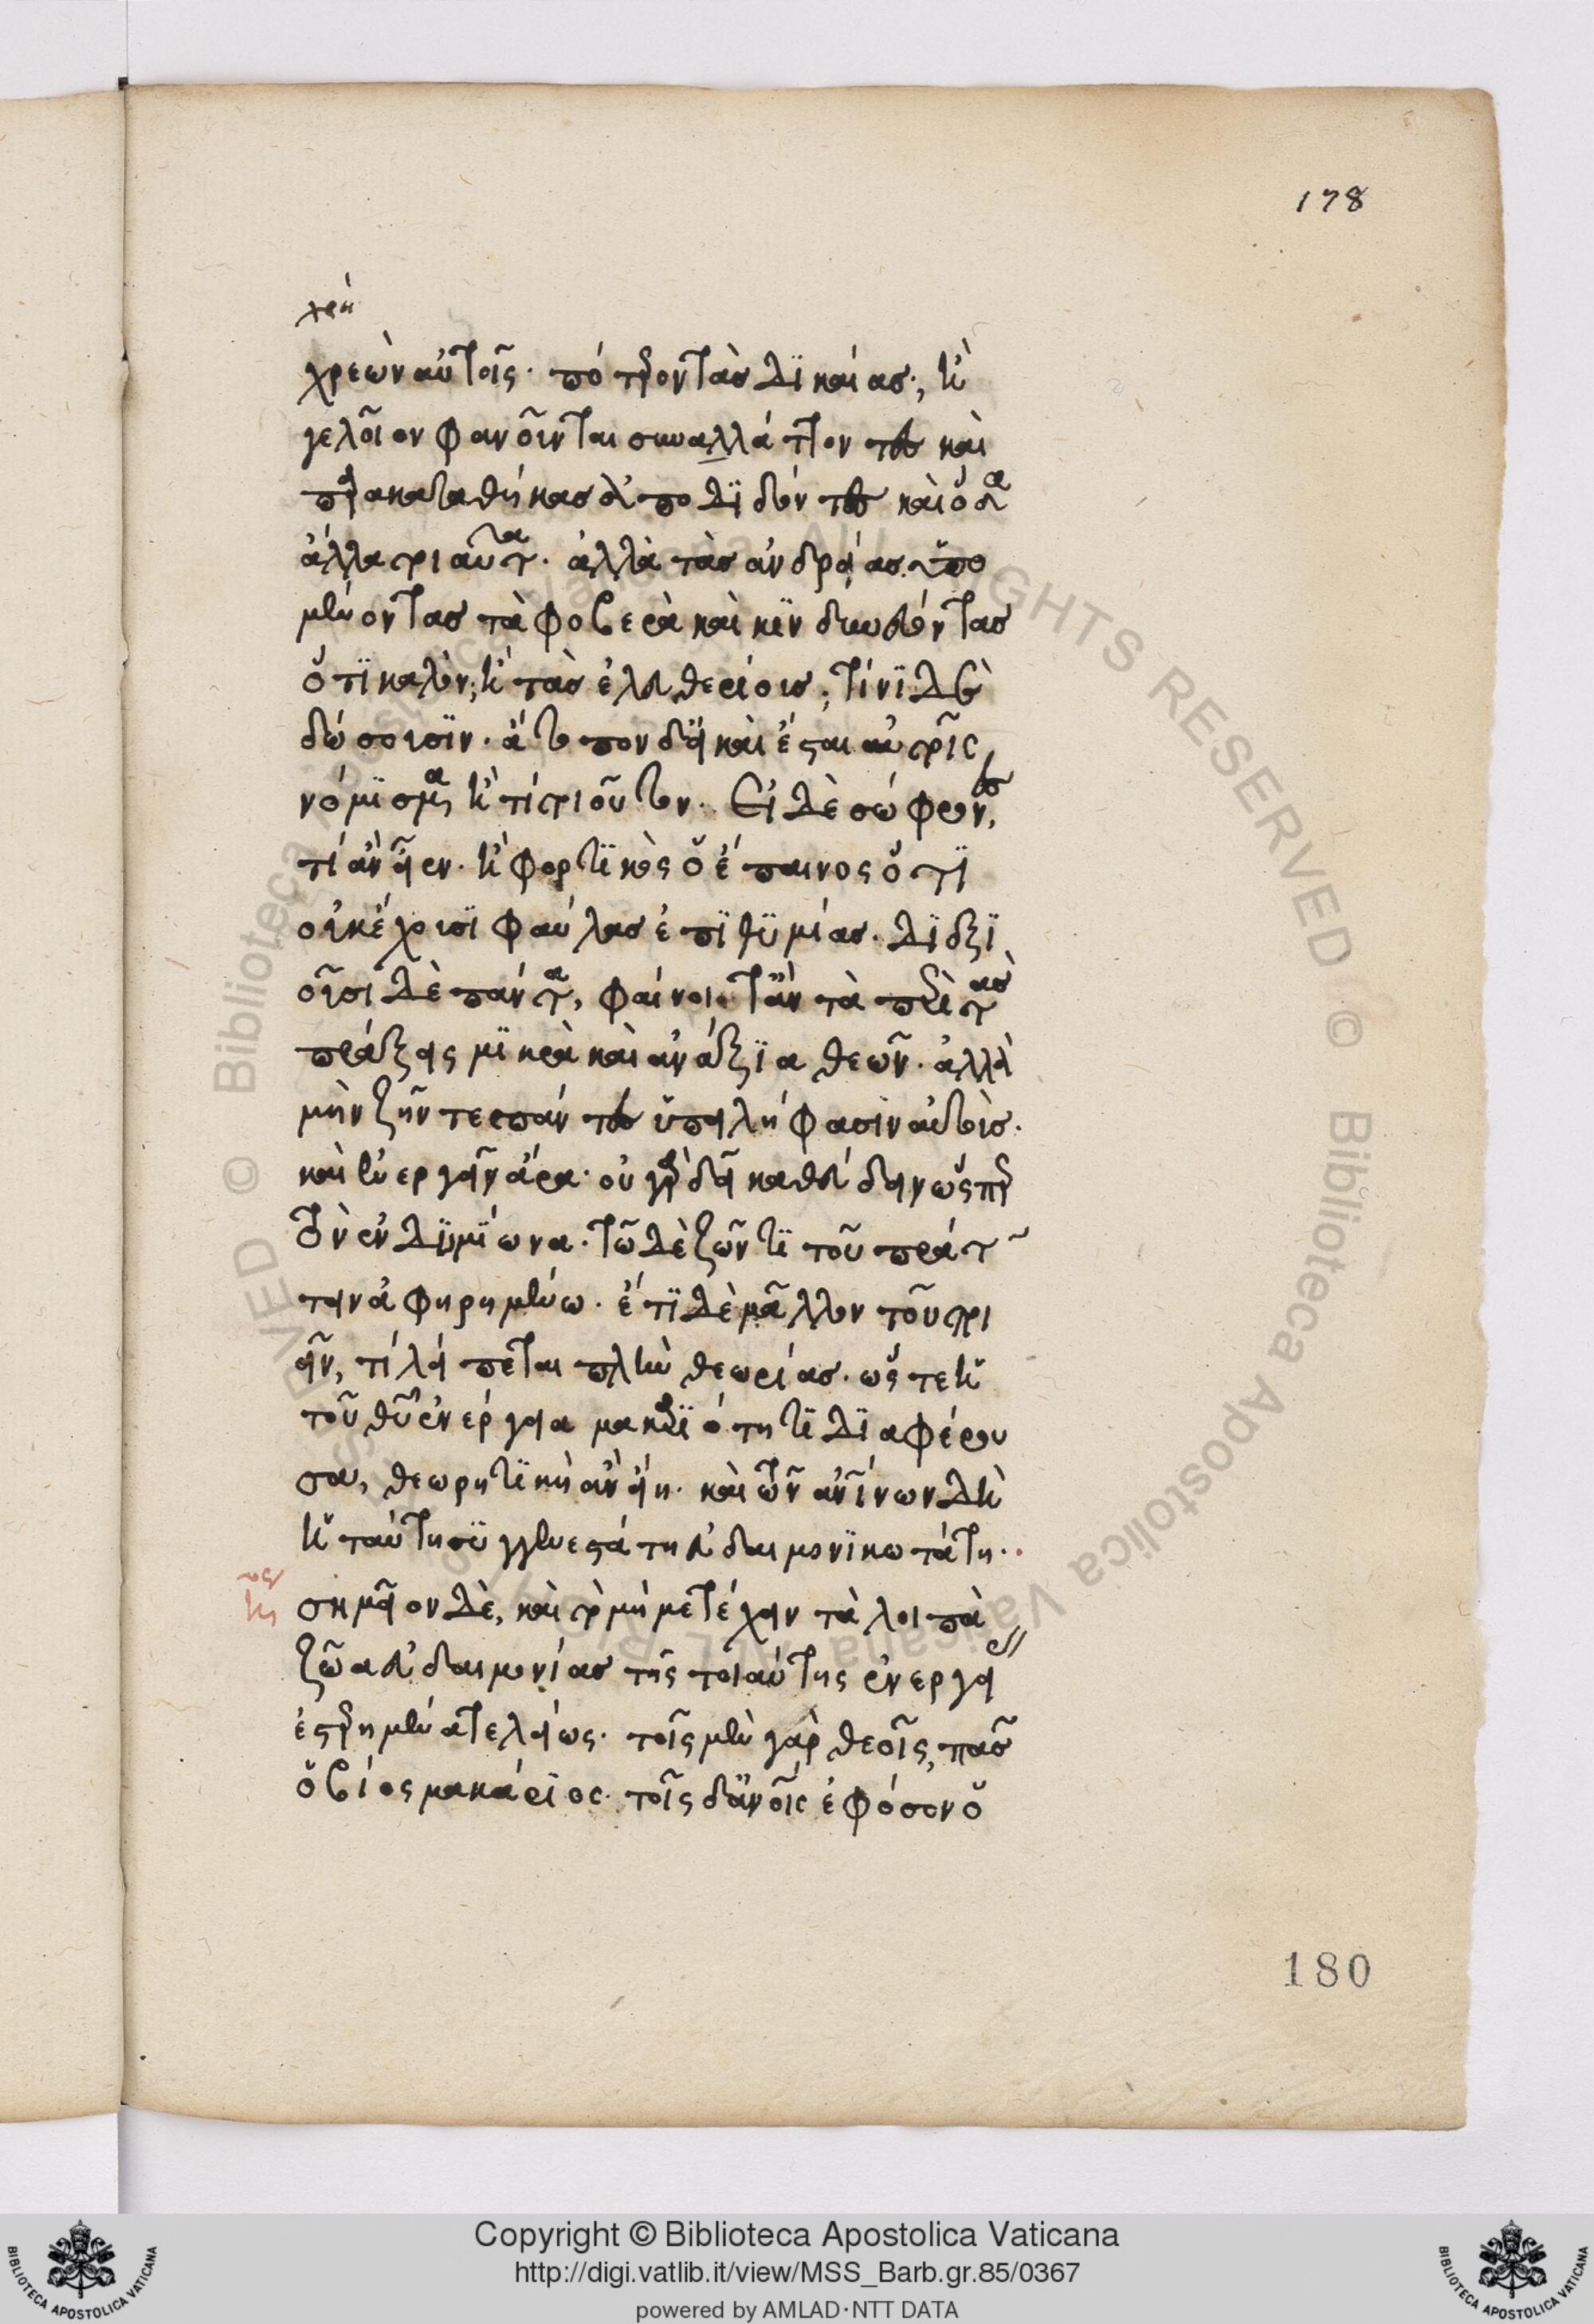 178
χρὴ
χρεὼν αὐτοῖς. πότερον τὰς δικαίας; ἢ
γελοῖον φανοῦνται συναλλάττοντες καὶ
παρακαταθήκας ἀποδιδόντες καὶ ὅσα
ἄλλα τοιαῦτα. ἀλλὰ τὰς ἀνδρείας ὑπο
μένοντας τὰ φοβερὰ καὶ κινδυνεύοντας
ὅτι καλόν; ἢ τὰς ἐλευθερίους; τίνι δὲ
δώσουσιν. ἄτοπον δ' εἰ καὶ ἔσται αὐτοῖς
νόμισμα ἤ τι τοιοῦτον. Εἰ δὲ σώφρονες,
τί ἂν εἶεν. ἢ φορτικὸς ὁ ἔπαινος ὅτι
οὐκ ἔχουσι φαύλας ἐπιθυμίας. διεξι
οῦσι δὲ πάντα, φαίνοιτ' ἂν τὰ περὶ τὰς
πράξεις μικρὰ καὶ ἀνάξια θεῶν. ἀλλὰ
μὴν ζῆν τε πάντες ὑπειλήφασιν αὐτούς.
καὶ ἐνεργεῖν ἄρα. οὐ γὰρ δεῖ καθεύδειν ὥσπερ
τὸν ἐνδυμίωνα. τῷ δὲ ζῶντι τοῦ πράτ
τειν ἀφῃρημένω. ἔτι δὲ μᾶλλον τοῦ ποι
εῖν, τί λείπεται πλὴν θεωρίας. ὥστε ἡ
τοῦ θεοῦ ἐνέργεια μακαριότητι διαφέρου
σα, θεωρητικὴ ἂν εἴη. καὶ τῶν ἀνθρωπίνων δὴ
ἡ ταύτῃ συγγενεστάτη εὐδαιμονικωτάτη.
σημεῖον δὲ, καὶ τὸ μὴ μετέχειν τὰ λοιπὰ
ζῷα εὐδαιμονίας τῆς τοιαύτης ἐνεργείας
ἐστερημένα τελείως. τοῖς μὲν γὰρ θεοῖς, πᾶς
ὁ βίος μακάριος. τοῖς δ' ἀνοις ἐφόσον ὁ
180
Copyright © Biblioteca Apostolica Vaticana
http://digi.vatlib.it/view/MSS_Barb.gr.85/0367
powered by AMLAD·NTT DATA